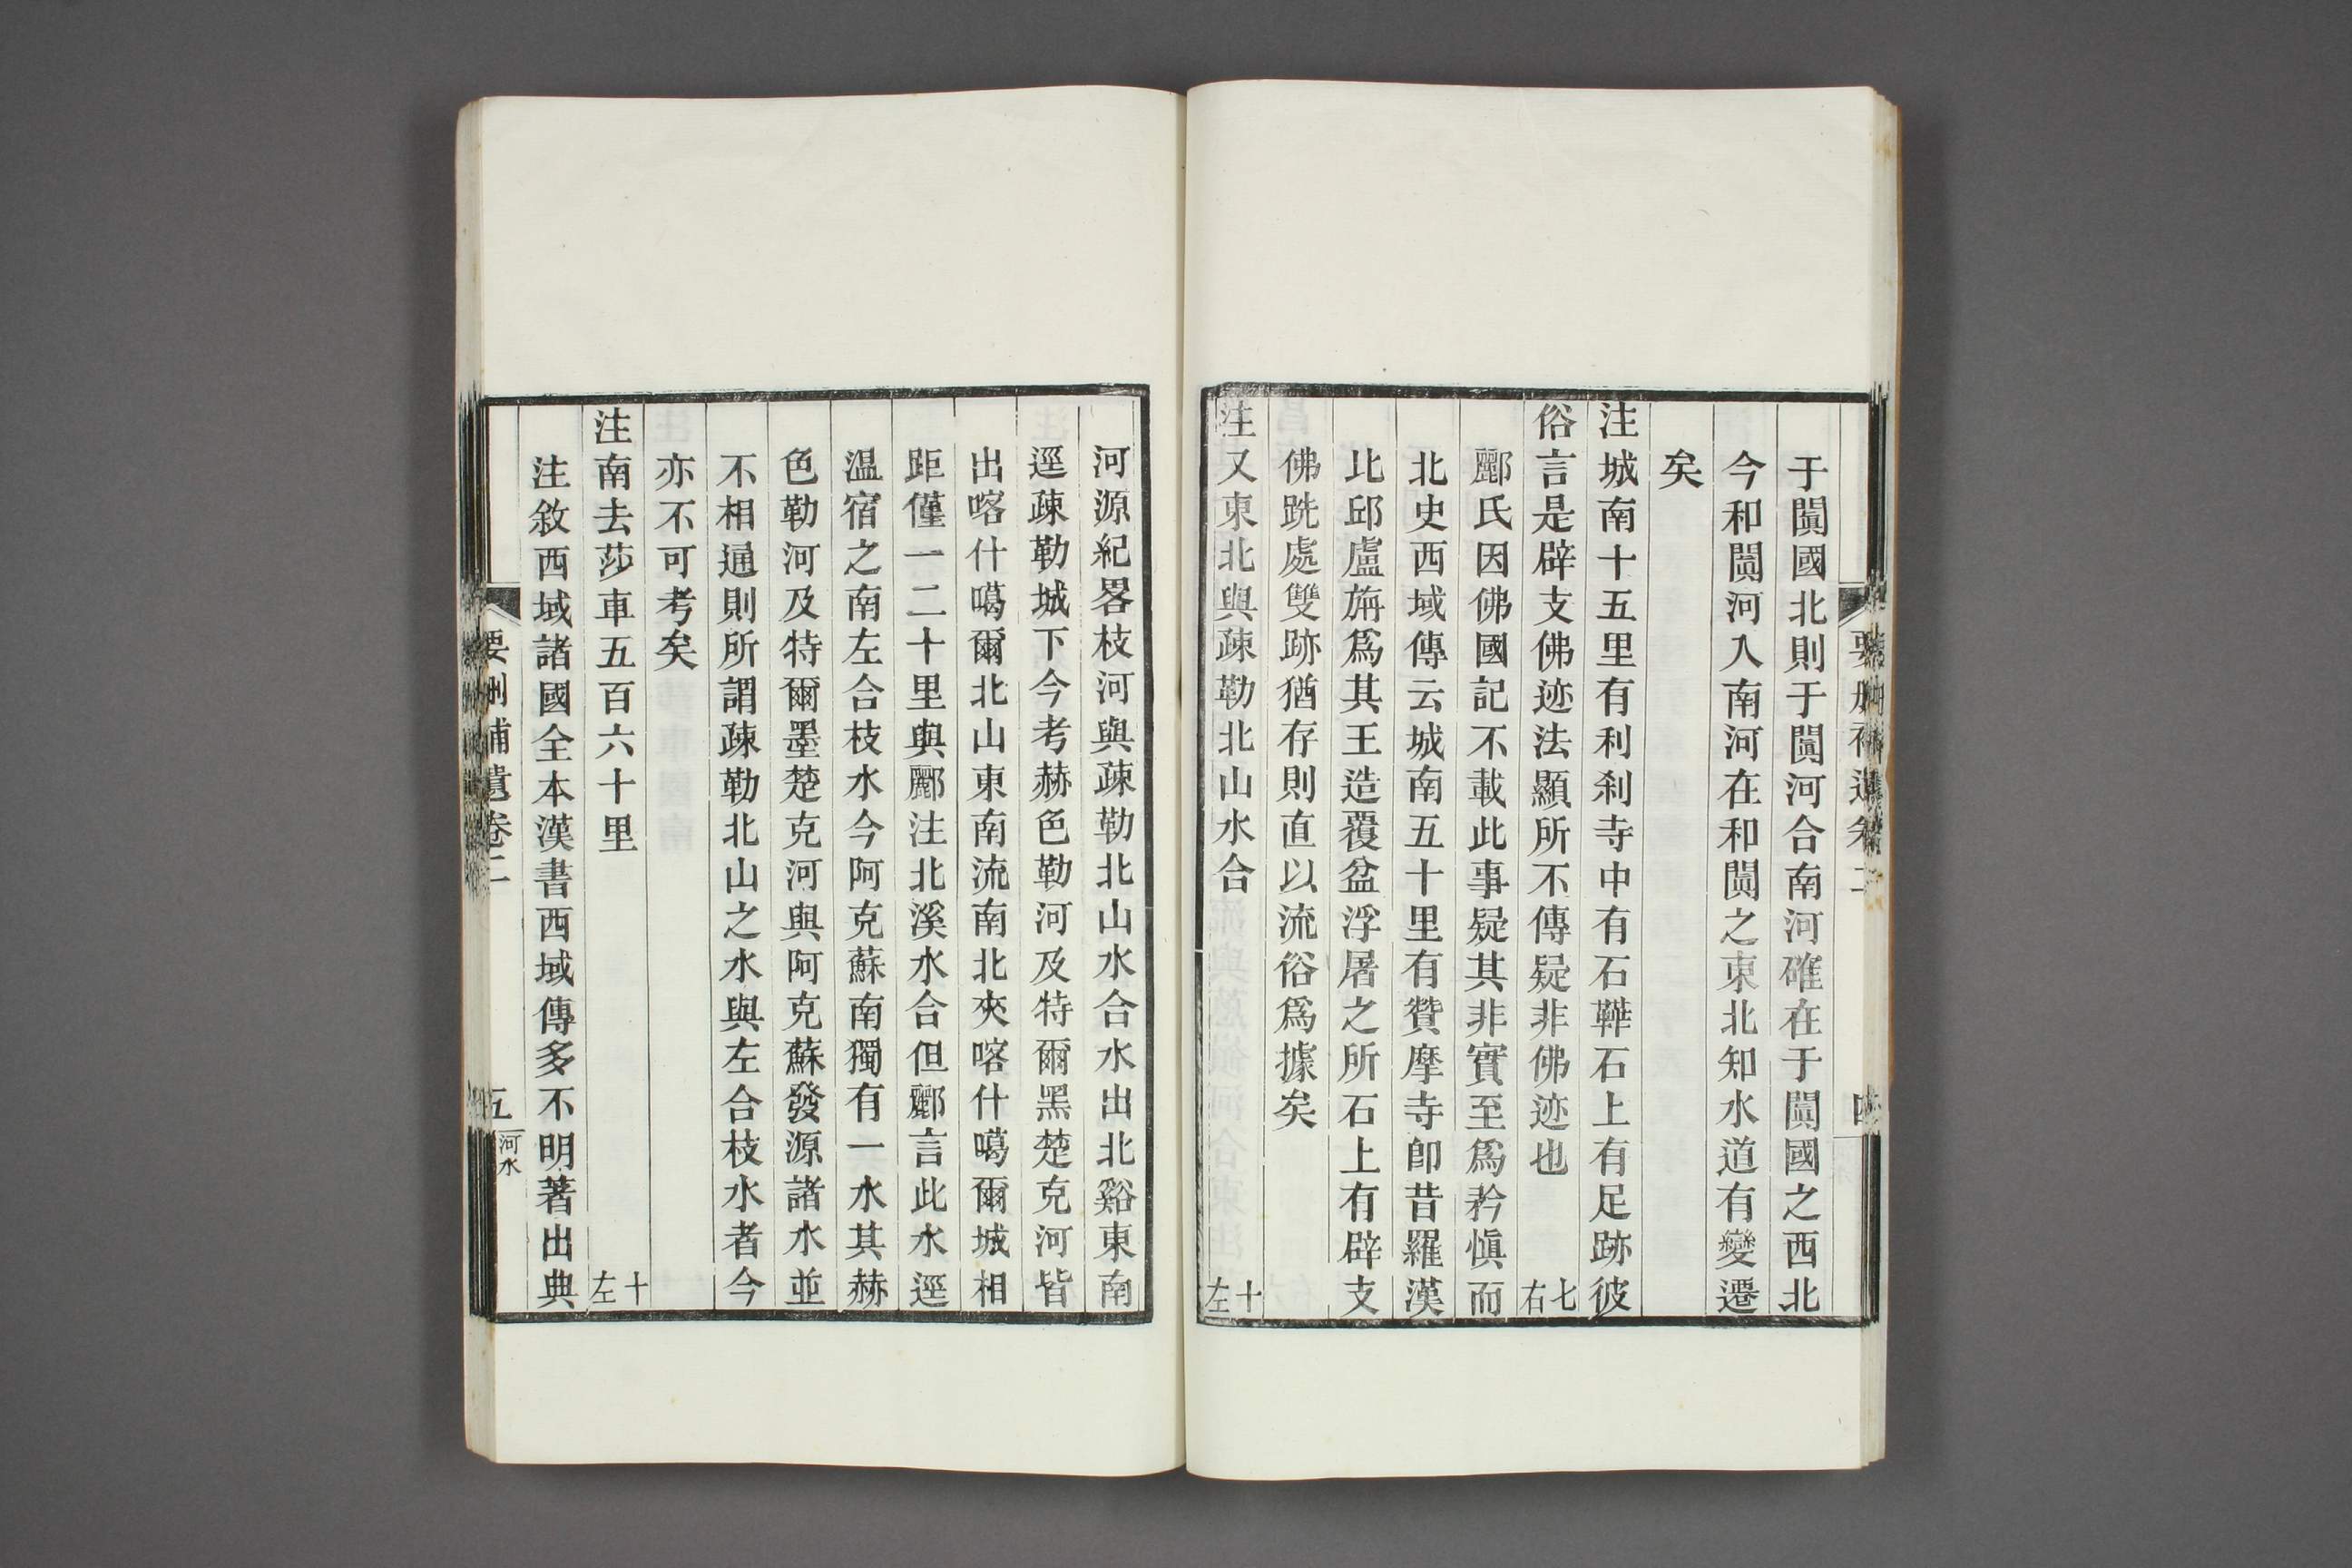 于闐國北則于闐河合南河確在于闐國之西北
今和闐河入南河在和闐之東北知水道有變遷
矣
注城南十五里有利刹寺中有石鞾石上有足跡彼
俗言是辟支佛迹法顯所不傳疑非佛迹也 七右
酈氏因佛國記不載此事疑其非實至爲矜愼而
北史西域傳云城南五十里有贊摩寺卽昔羅漢
比邱盧旃爲其王造覆盆浮屠之所石上有辟支
佛跣處雙跡猶存則直以流俗爲據矣
注又東北與疎勒北山水合 十左
河源紀畧枝河與疎勒北山水合水出北谿東南
逕疎勒城下今考赫色勒河及特爾黑楚克河皆
出喀什噶爾北山東南流南北夾喀什噶爾城相
距僅一二十里與酈注北溪水合但酈言此水逕
溫宿之南左合枝水今阿克蘇南獨有一水其赫
色勒河及特爾墨楚克河與阿克蘇發源諸水並
不相通則所謂疎勒北山之水與左合枝水者今
亦不可考矣
注南去莎車五百六十里 十左
注敘西域諸國全本漢書西域傳多不明著出典
要删補遺卷二
五
河水